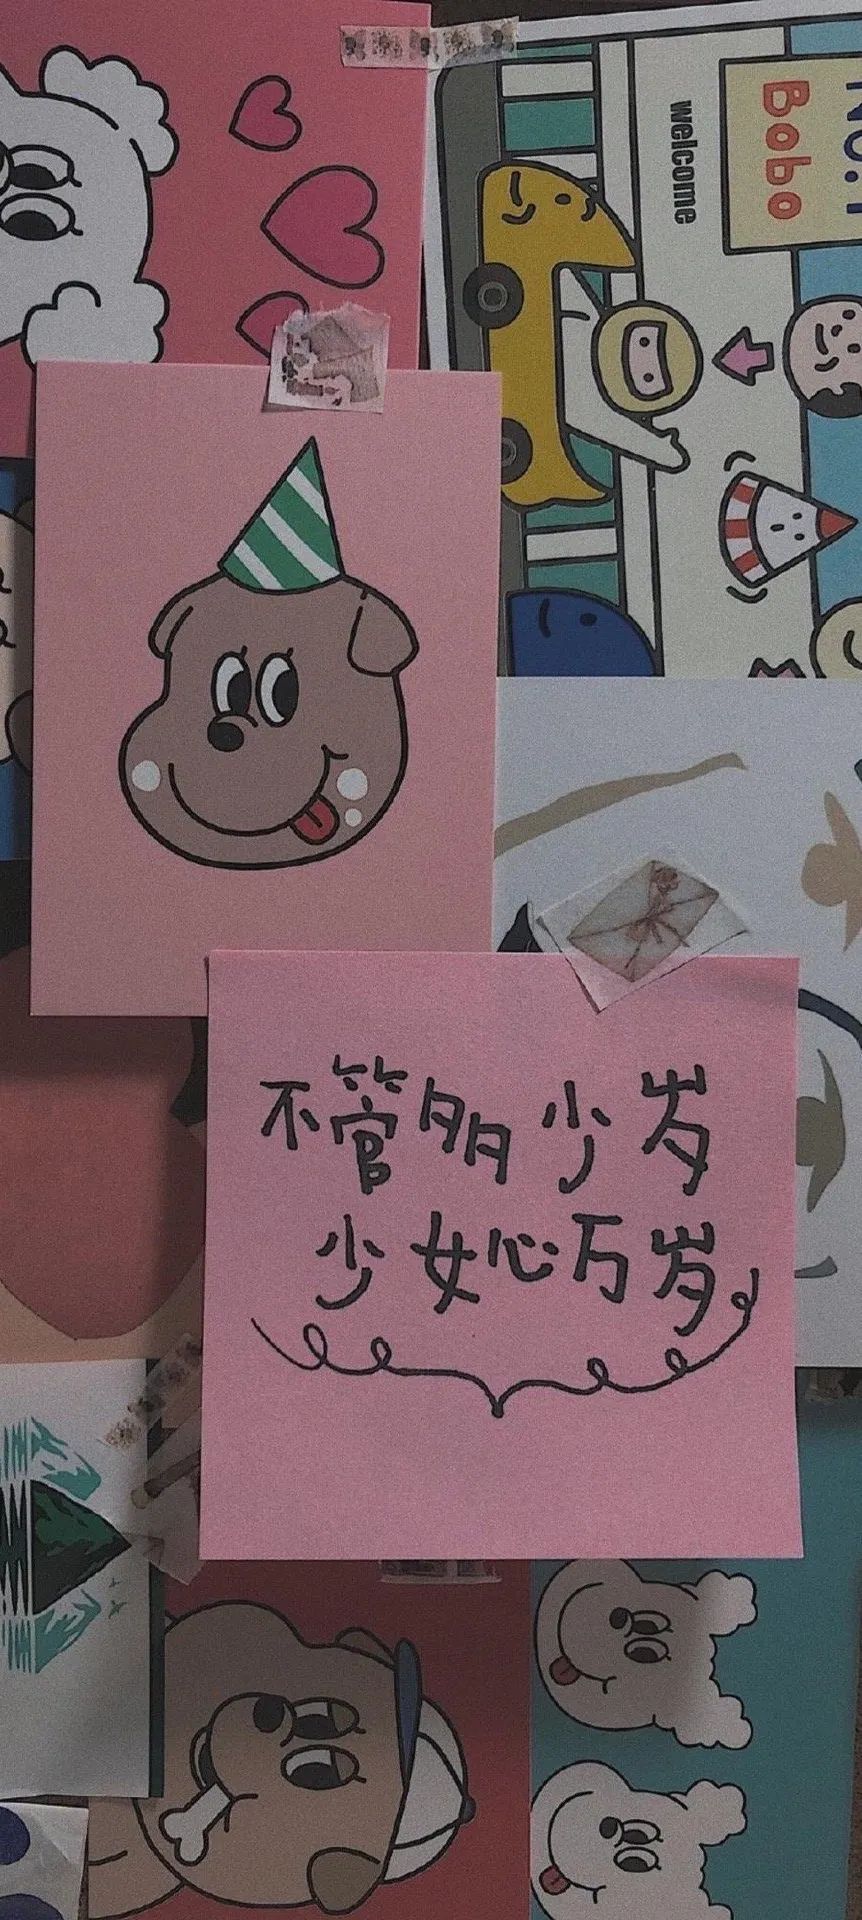 welcome
Bobo
不管多少岁
少女心万岁